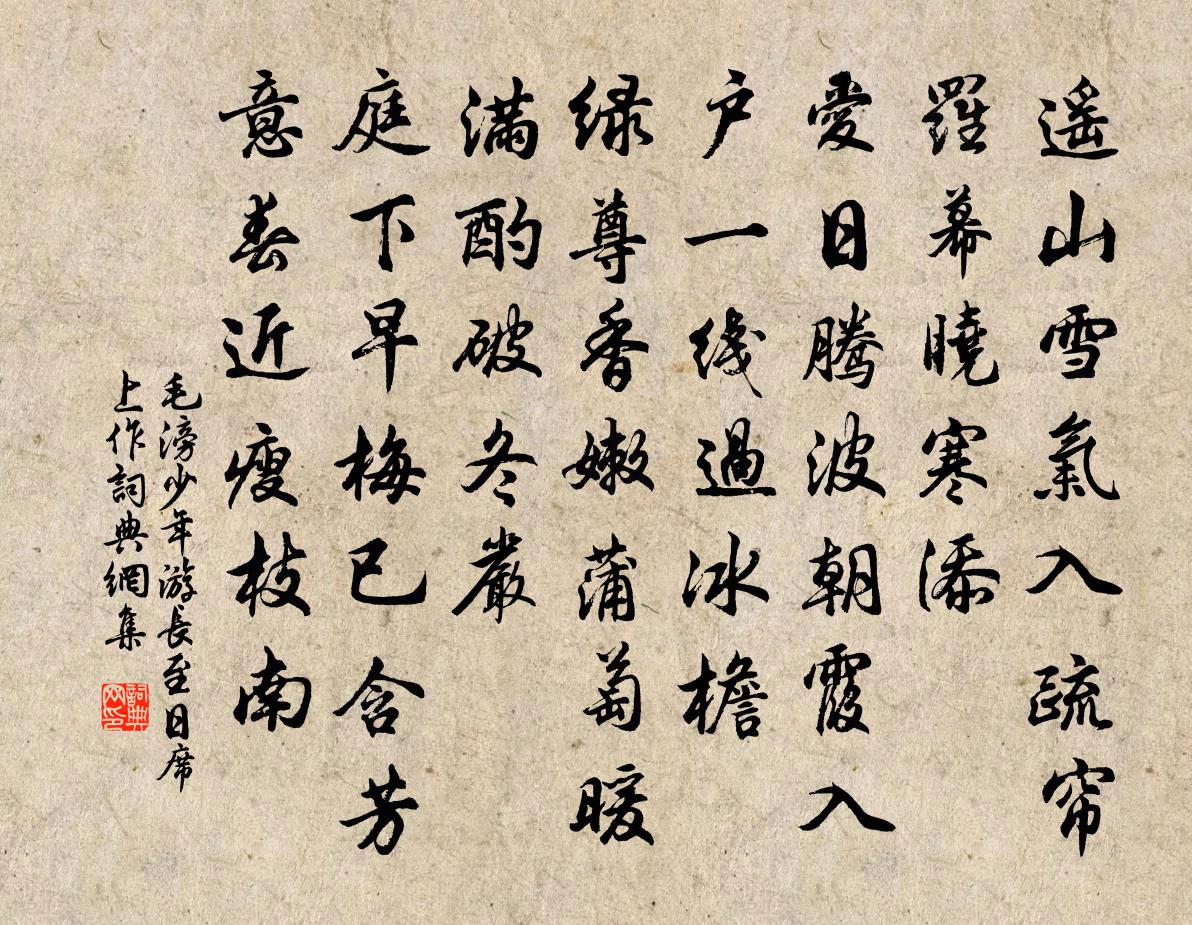 遥山雪氣入疏帘
羅幕曉寒添
愛日腾波朝霞入
户一线過冰檐
绿尊香嫩蒲萄暖
满酌破冬嚴
庭下早梅已含芳
意春近瘦枝南
毛滂少年游長至日席
上作詞典網集
詞典网印